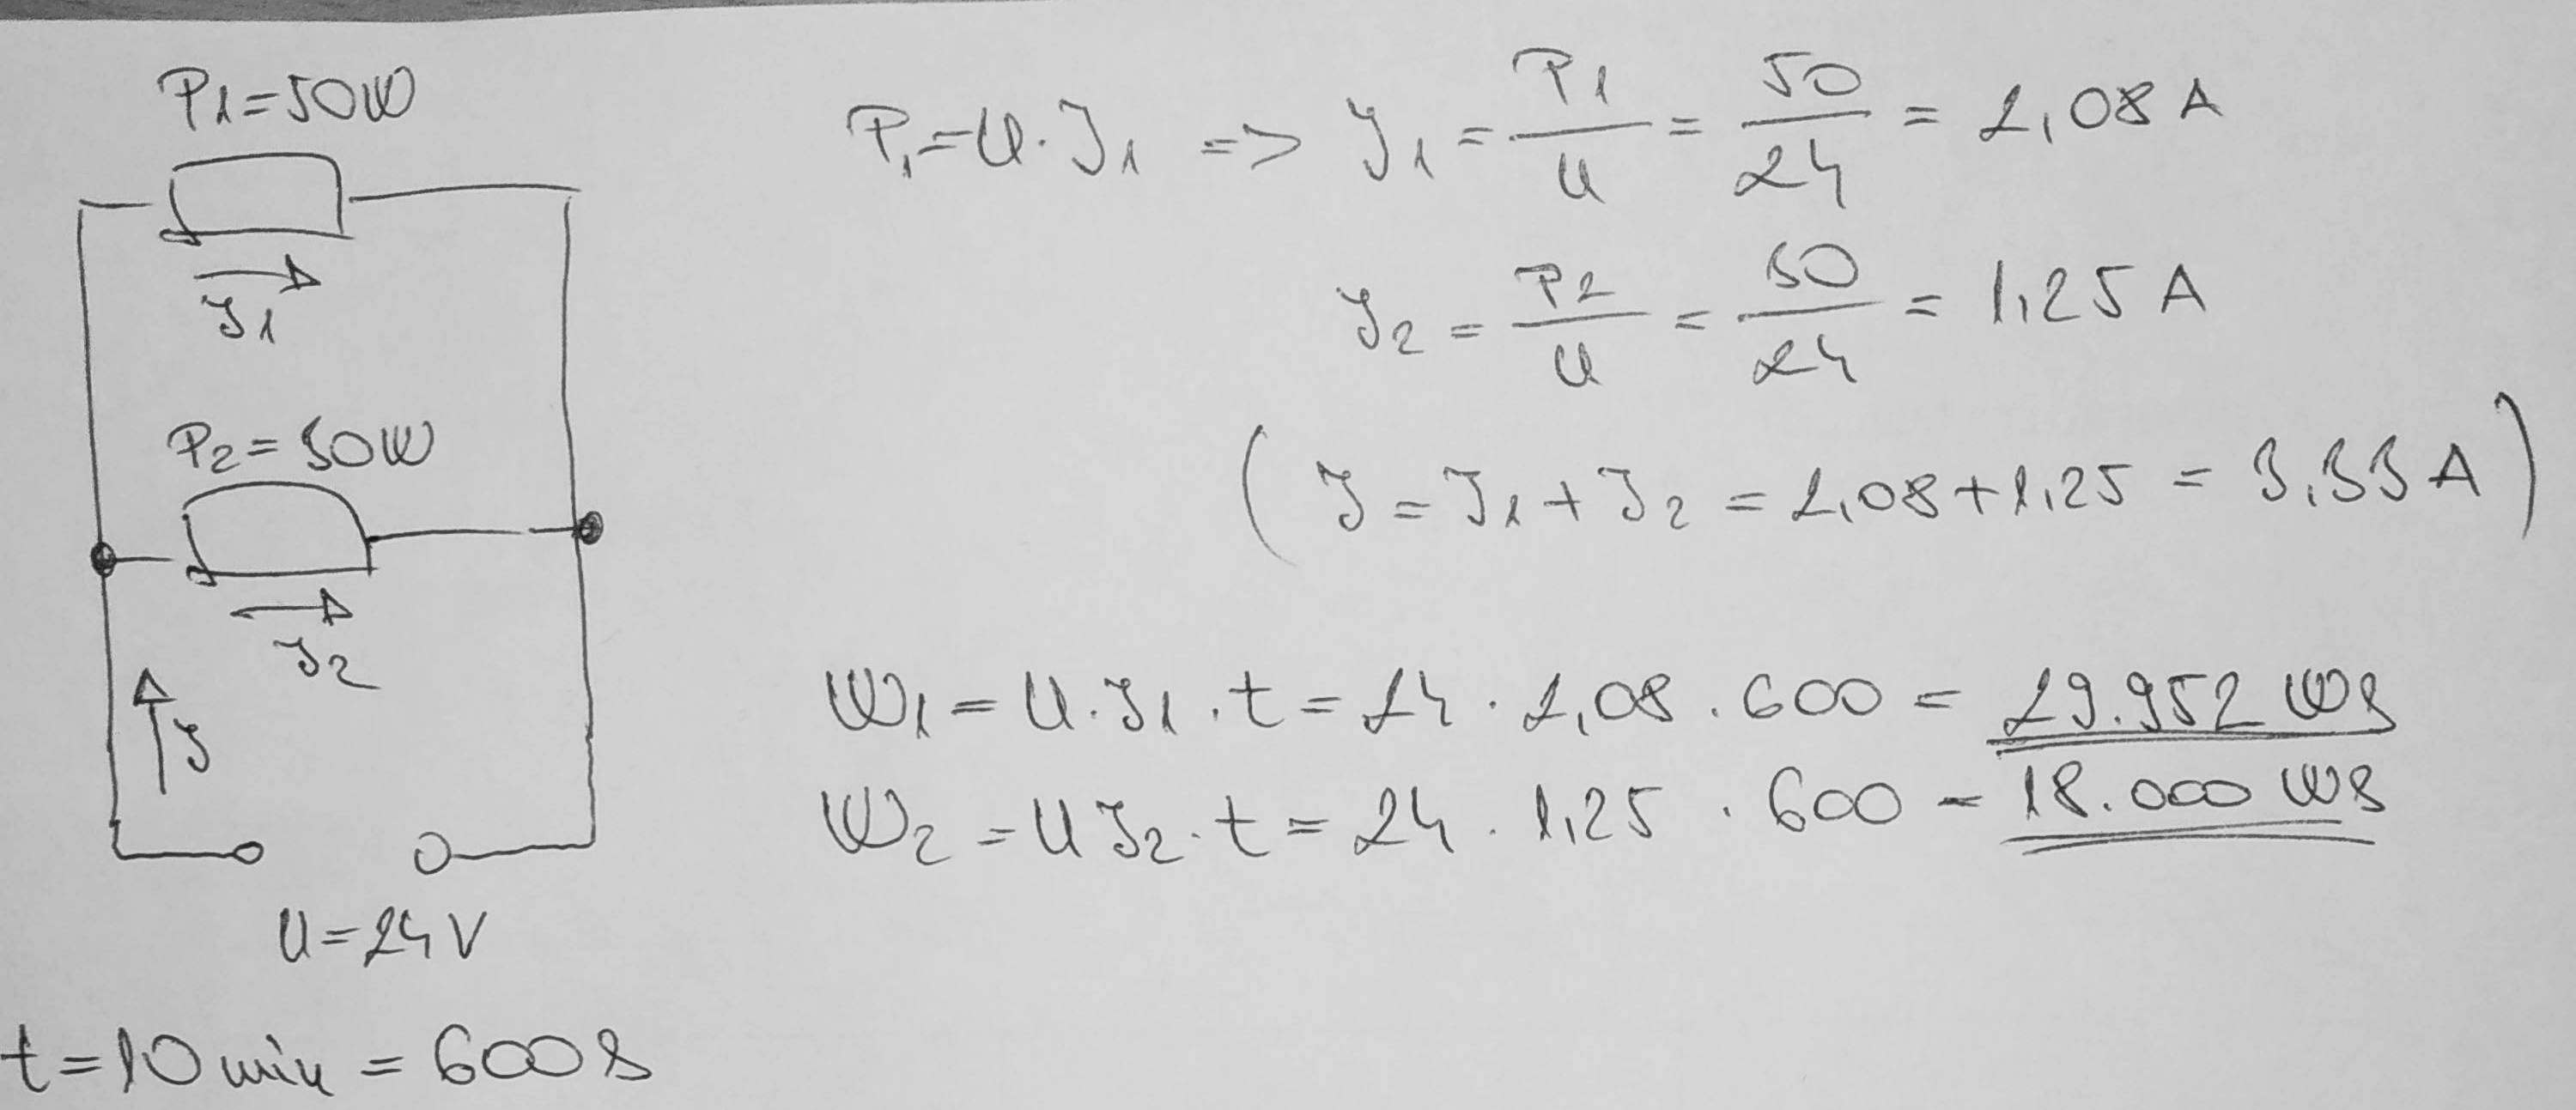 P1=50W
J1
P2=30W
J2
J
U=24V
t=10min=600s
P1=U·J1 => J1 = P1/U = 50/24 = 2,08A
J2 = P2/U = 30/24 = 1,25A
(J=J1+J2=2,08+1,25=3,33A)
W1=U·J1·t=24·2,08·600=29.952Ws
W2=UJ2·t=24·1,25·600=18.000Ws